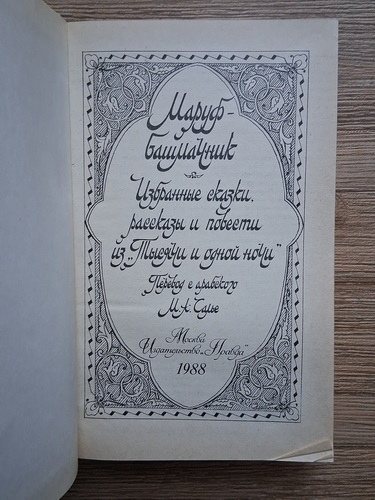 Маруф-
башмачник
Избранные сказки,
рассказы и повести
из „Тысячи и одной ночи"
Перевод с арабского
М.А. Салье
Москва
Издательство „Правда"
1988